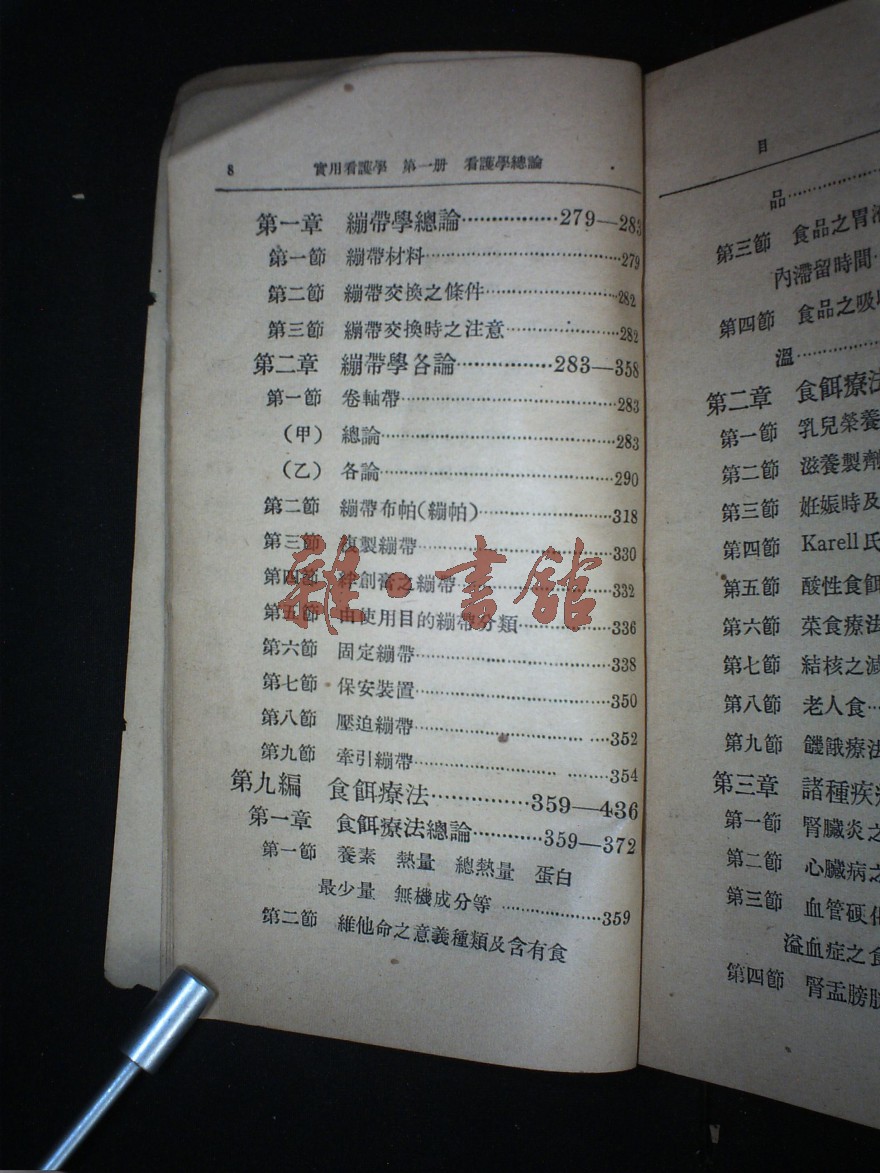 8 實用看護學 第一册 看護學總論
第一章 繃帶學總論················279—283
第一節 繃帶材料································279
第二節 繃帶交換之條件······················282
第三節 繃帶交換時之注意··················282
第二章 繃帶學各論················283—358
第一節 卷軸帶····································283
(甲) 總論····································283
(乙) 各論····································290
第二節 繃帶布帕(繃帕)······················318
第三節 複製繃帶································330
第四節 絆創膏之繃帶··························332
第五節 由使用目的繃帶分類················336
第六節 固定繃帶································338
第七節 保安裝置································350
第八節 壓迫繃帶································352
第九節 牽引繃帶································354
第九編 食餌療法··············359—436
第一章 食餌療法總論············359—372
第一節 養素 熱量 總熱量 蛋白
最少量 無機成分等················359
第二節 維他命之意義種類及含有食
雜·書館
目
品··················
第三節 食品之胃
內滯留時間··
第四節 食品之吸
溫··················
第二章 食餌療法
第一節 乳兒榮養
第二節 滋養製劑
第三節 妊娠時及
第四節 Karell氏
第五節 酸性食餌
第六節 菜食療法
第七節 結核之減
第八節 老人食···
第九節 饑餓療法
第三章 諸種疾
第一節 腎臟炎之
第二節 心臟病之
第三節 血管硬化
溢血症之食
第四節 腎盂膀胱